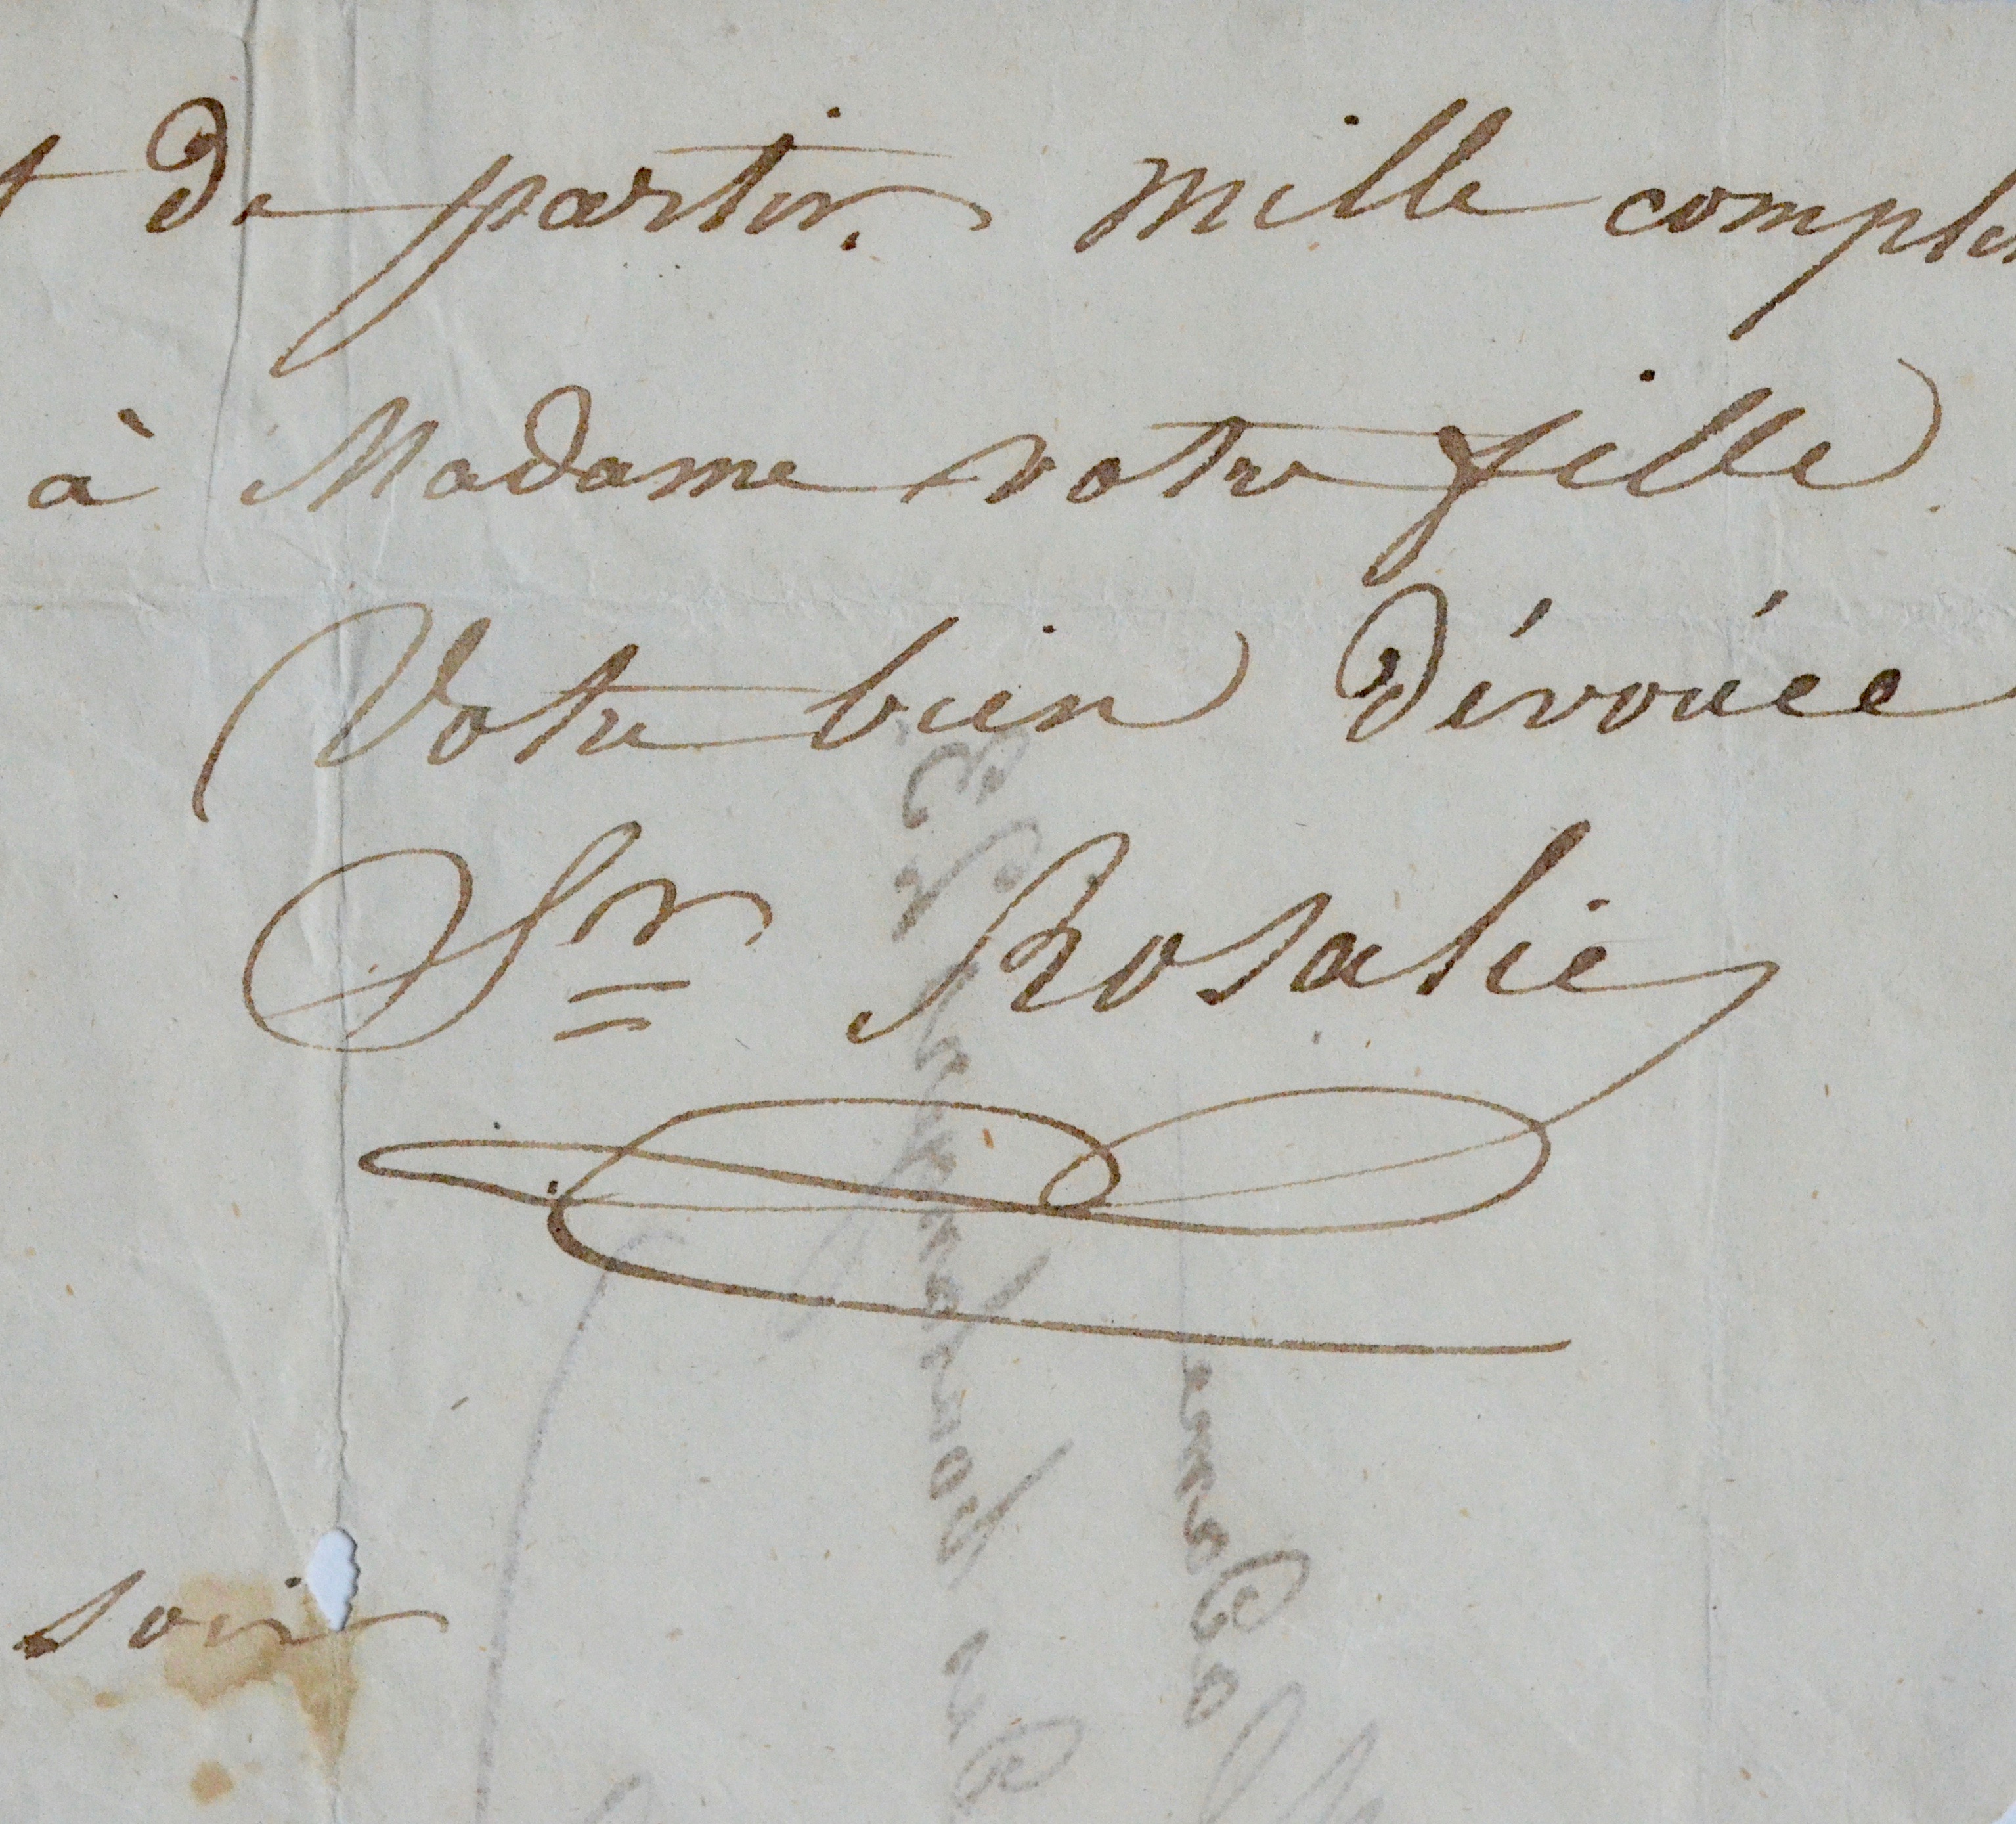 t de partir. mille compli
à Madame votre fille.
Votre bien dévouée
Sr Rosalie
soir